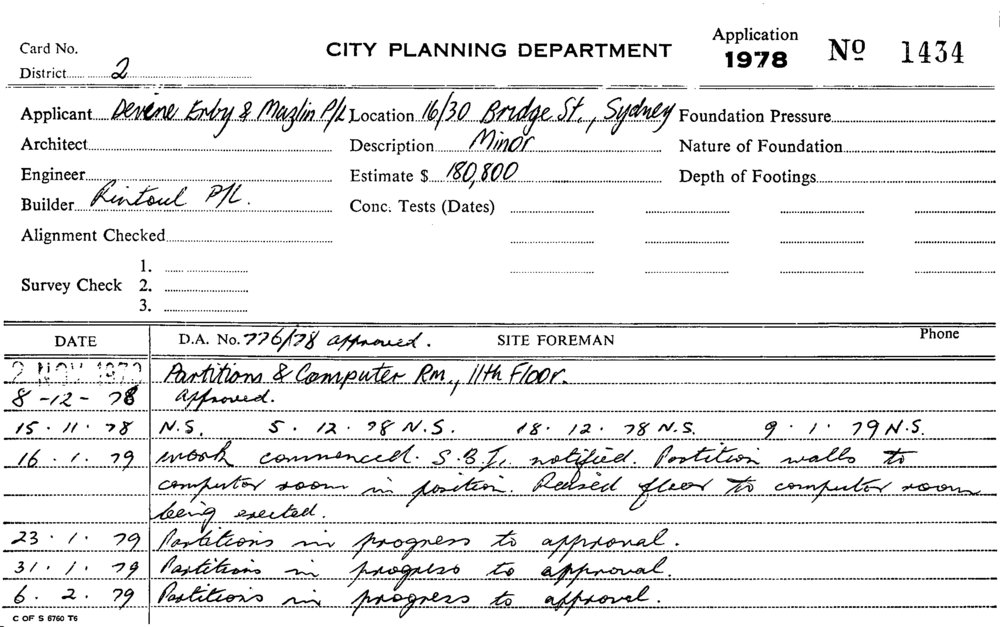 Card No. CITY PLANNING DEPARTMENT Application 1978 Nº 1434
District 2
Applicant Devine Erby & Mazlin P/L Location 16/30 Bridge St., Sydney Foundation Pressure
Architect Description Minor Nature of Foundation
Engineer Estimate $ 180,800 Depth of Footings
Builder Rintoul P/L. Conc. Tests (Dates)
Alignment Checked
1.
Survey Check 2.
3.
DATE D.A. No. 776/78 approved. SITE FOREMAN Phone
2 NOV 1978 Partitions & Computer Rm., 11th Floor.
8-12-78 Approved.
15.11.78 N.S. 5.12.78 N.S. 18.12.78 N.S. 9.1.79 N.S.
16.1.79 work commenced. S.B.I. notified. Partition walls to
computor room in position. Raised floor to computor room
being erected.
23.1.79 Partitions in progress to approval.
31.1.79 Partitions in progress to approval.
6.2.79 Partitions in progress to approval.
C OF S 6760 T6